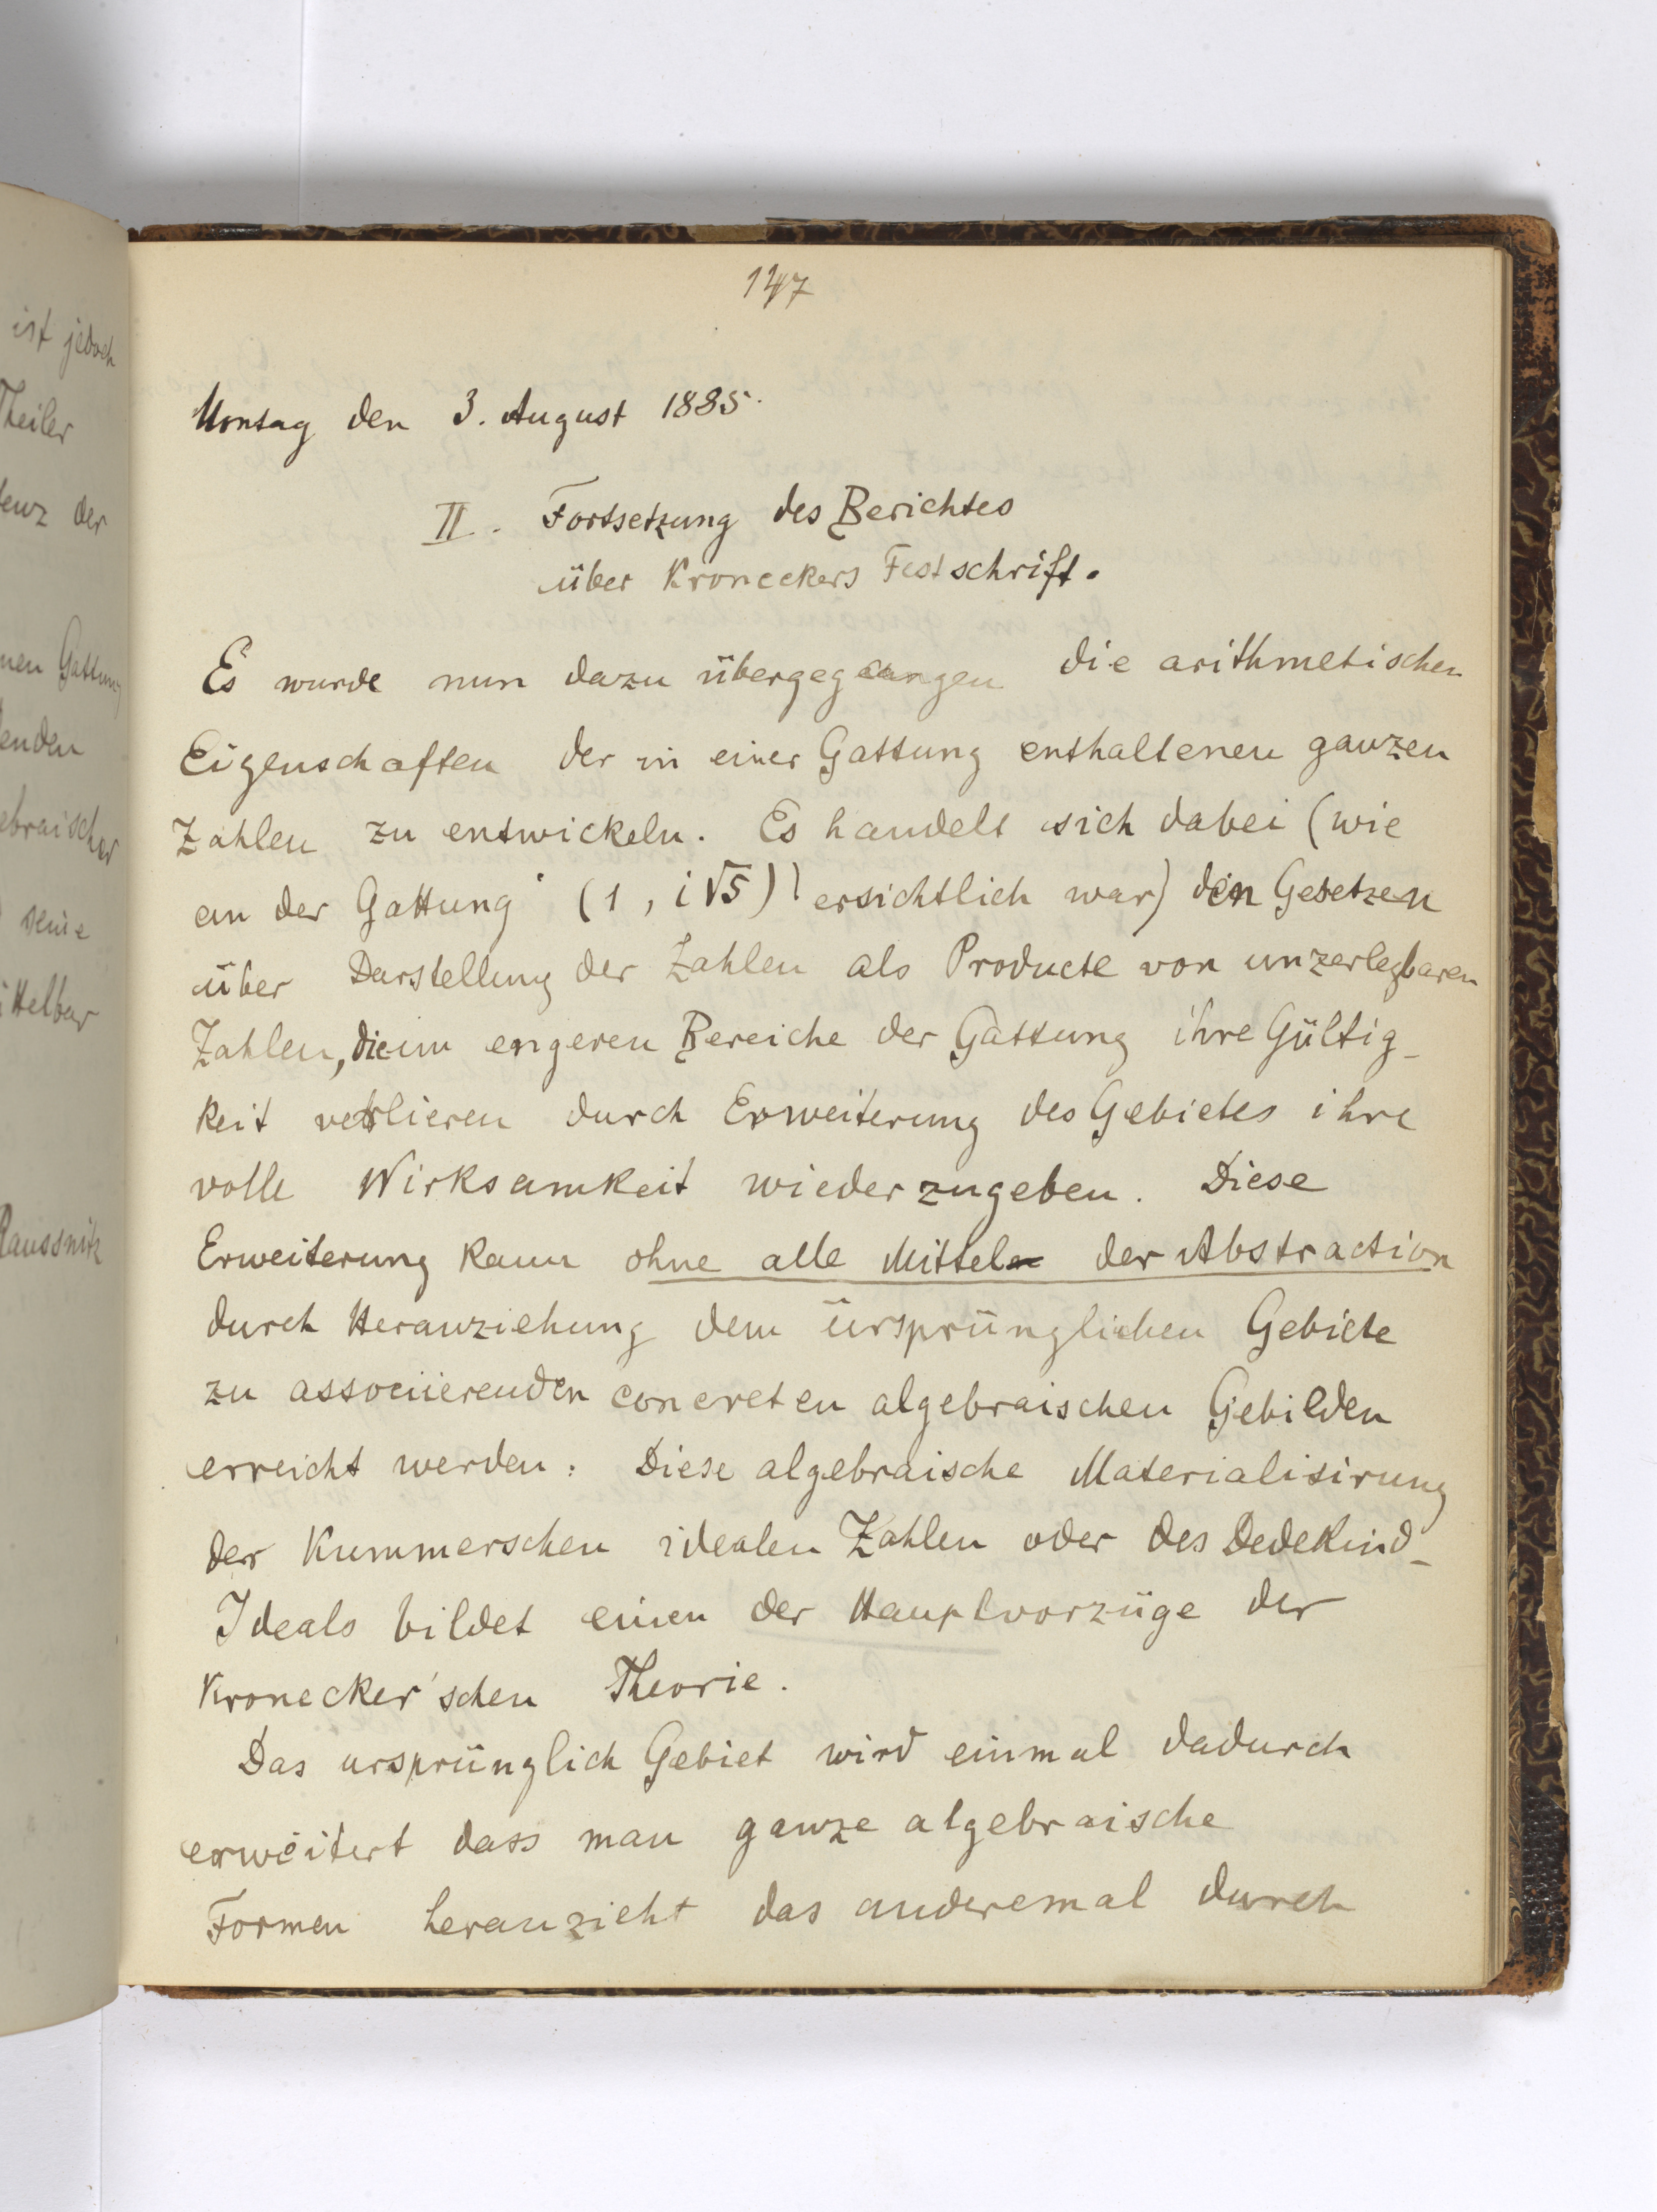 ist jedoch
Theiler
der
Gattung
enden
ebraischer
seine
ittelbar
aussnitz
147
Montag den 3. August 1885.
II. Fortsetzung des Berichtes
über Kroneckers Festschrift.
Es wurde nun dazu übergegangen die arithmetischen
Eigenschaften der in einer Gattung enthaltenen ganzen
Zahlen zu entwickeln. Es handelt sich dabei (wie
an der Gattung (1, i√5) ersichtlich war) den Gesetzen
über Darstellung der Zahlen als Producte von unzerlegbaren
Zahlen, die im engeren Bereiche der Gattung ihre Gültig-
keit verlieren durch Erweiterung des Gebietes ihre
volle Wirksamkeit wiederzugeben. Diese
Erweiterung kann ohne alle Mittel der Abstraction
durch Heranziehung dem ursprünglichen Gebiete
zu associierenden concreten algebraischen Gebilden
erreicht werden. Diese algebraische Materialisirung
der Kummerschen idealen Zahlen oder des Dedekind-
Ideals bildet einen der Hauptvorzüge der
Kronecker'schen Theorie.
Das ursprünglich Gebiet wird einmal dadurch
erweitert dass man ganze algebraische
Formen heranzieht das anderemal durch